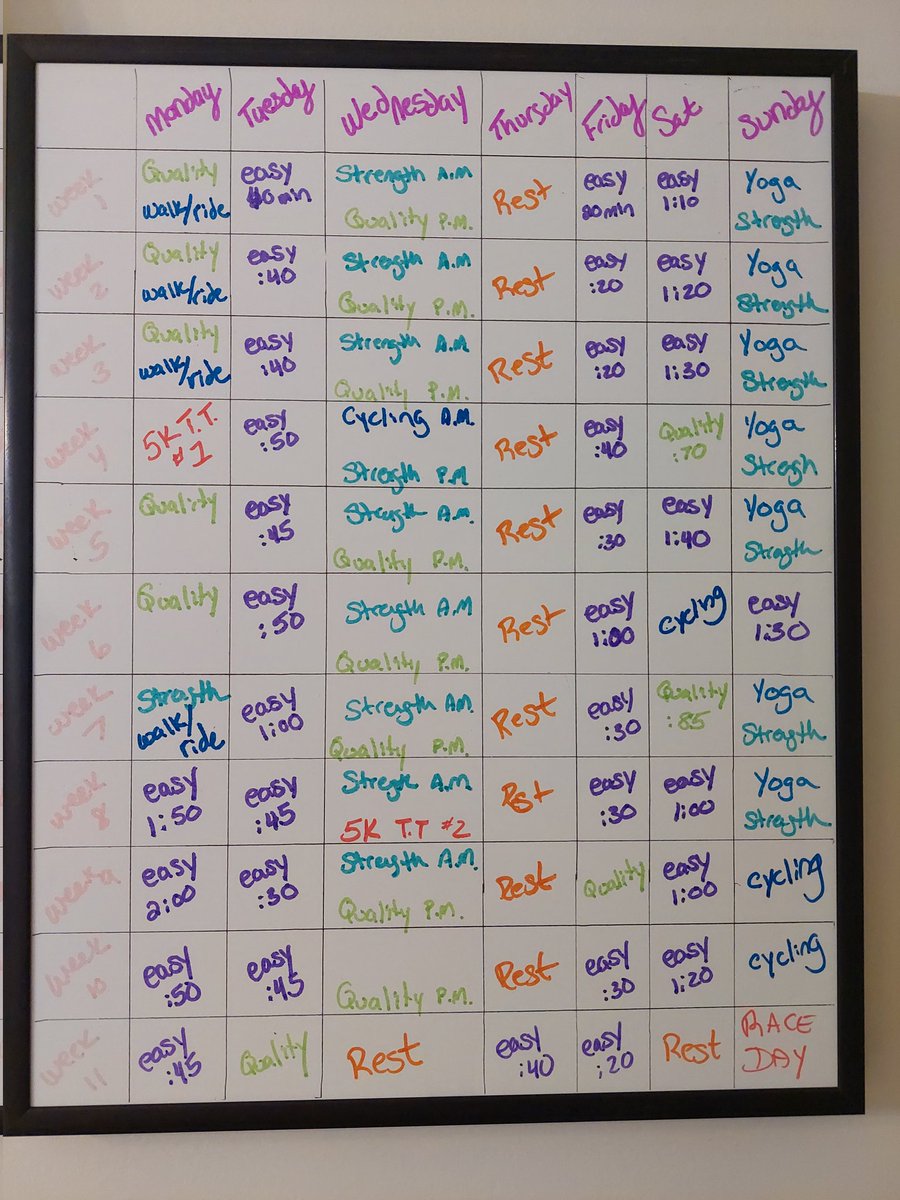 Monday Tuesday Wednesday Thursday Friday Sat Sunday
week 1
Quality
walk/ride
easy
40 min
Strength A.M
Quality P.M.
Rest
easy
20 min
easy
1:10
Yoga
Strength
week 2
Quality
walk/ride
easy
:40
Strength A.M
Quality P.M.
Rest
easy
:20
easy
1:20
Yoga
Strength
week 3
Quality
walk/ride
easy
:40
Strength A.M
Quality P.M.
Rest
easy
:20
easy
1:30
Yoga
Strength
week 4
5K T.T.
#1
easy
:50
Cycling A.M.
Strength P.M
Rest
easy
:40
Quality
:70
Yoga
Stregh
week 5
Quality
easy
:45
Strength A.M.
Quality P.M.
Rest
easy
:30
easy
1:40
Yoga
Strength
week 6
Quality
easy
:50
Strength A.M
Quality P.M.
Rest
easy
1:00
cycling
easy
1:30
week 7
Strength
walk/
ride
easy
1:00
Strength AM.
Quality P.M.
Rest
easy
:30
Quality
:85
Yoga
Strength
week 8
easy
1:50
easy
:45
A.M.
5K T.T #2
Rest
easy
:30
easy
1:00
Yoga
Strength
week 9
easy
2:00
easy
:30
Strength A.M.
Quality P.M.
Rest
Quality
easy
1:00
cycling
week 10
easy
:50
easy
:45
Quality P.M.
Rest
easy
:30
easy
1:20
cycling
week 11
easy
:45
Quality
Rest
easy
:40
easy
:20
Rest
RACE
DAY